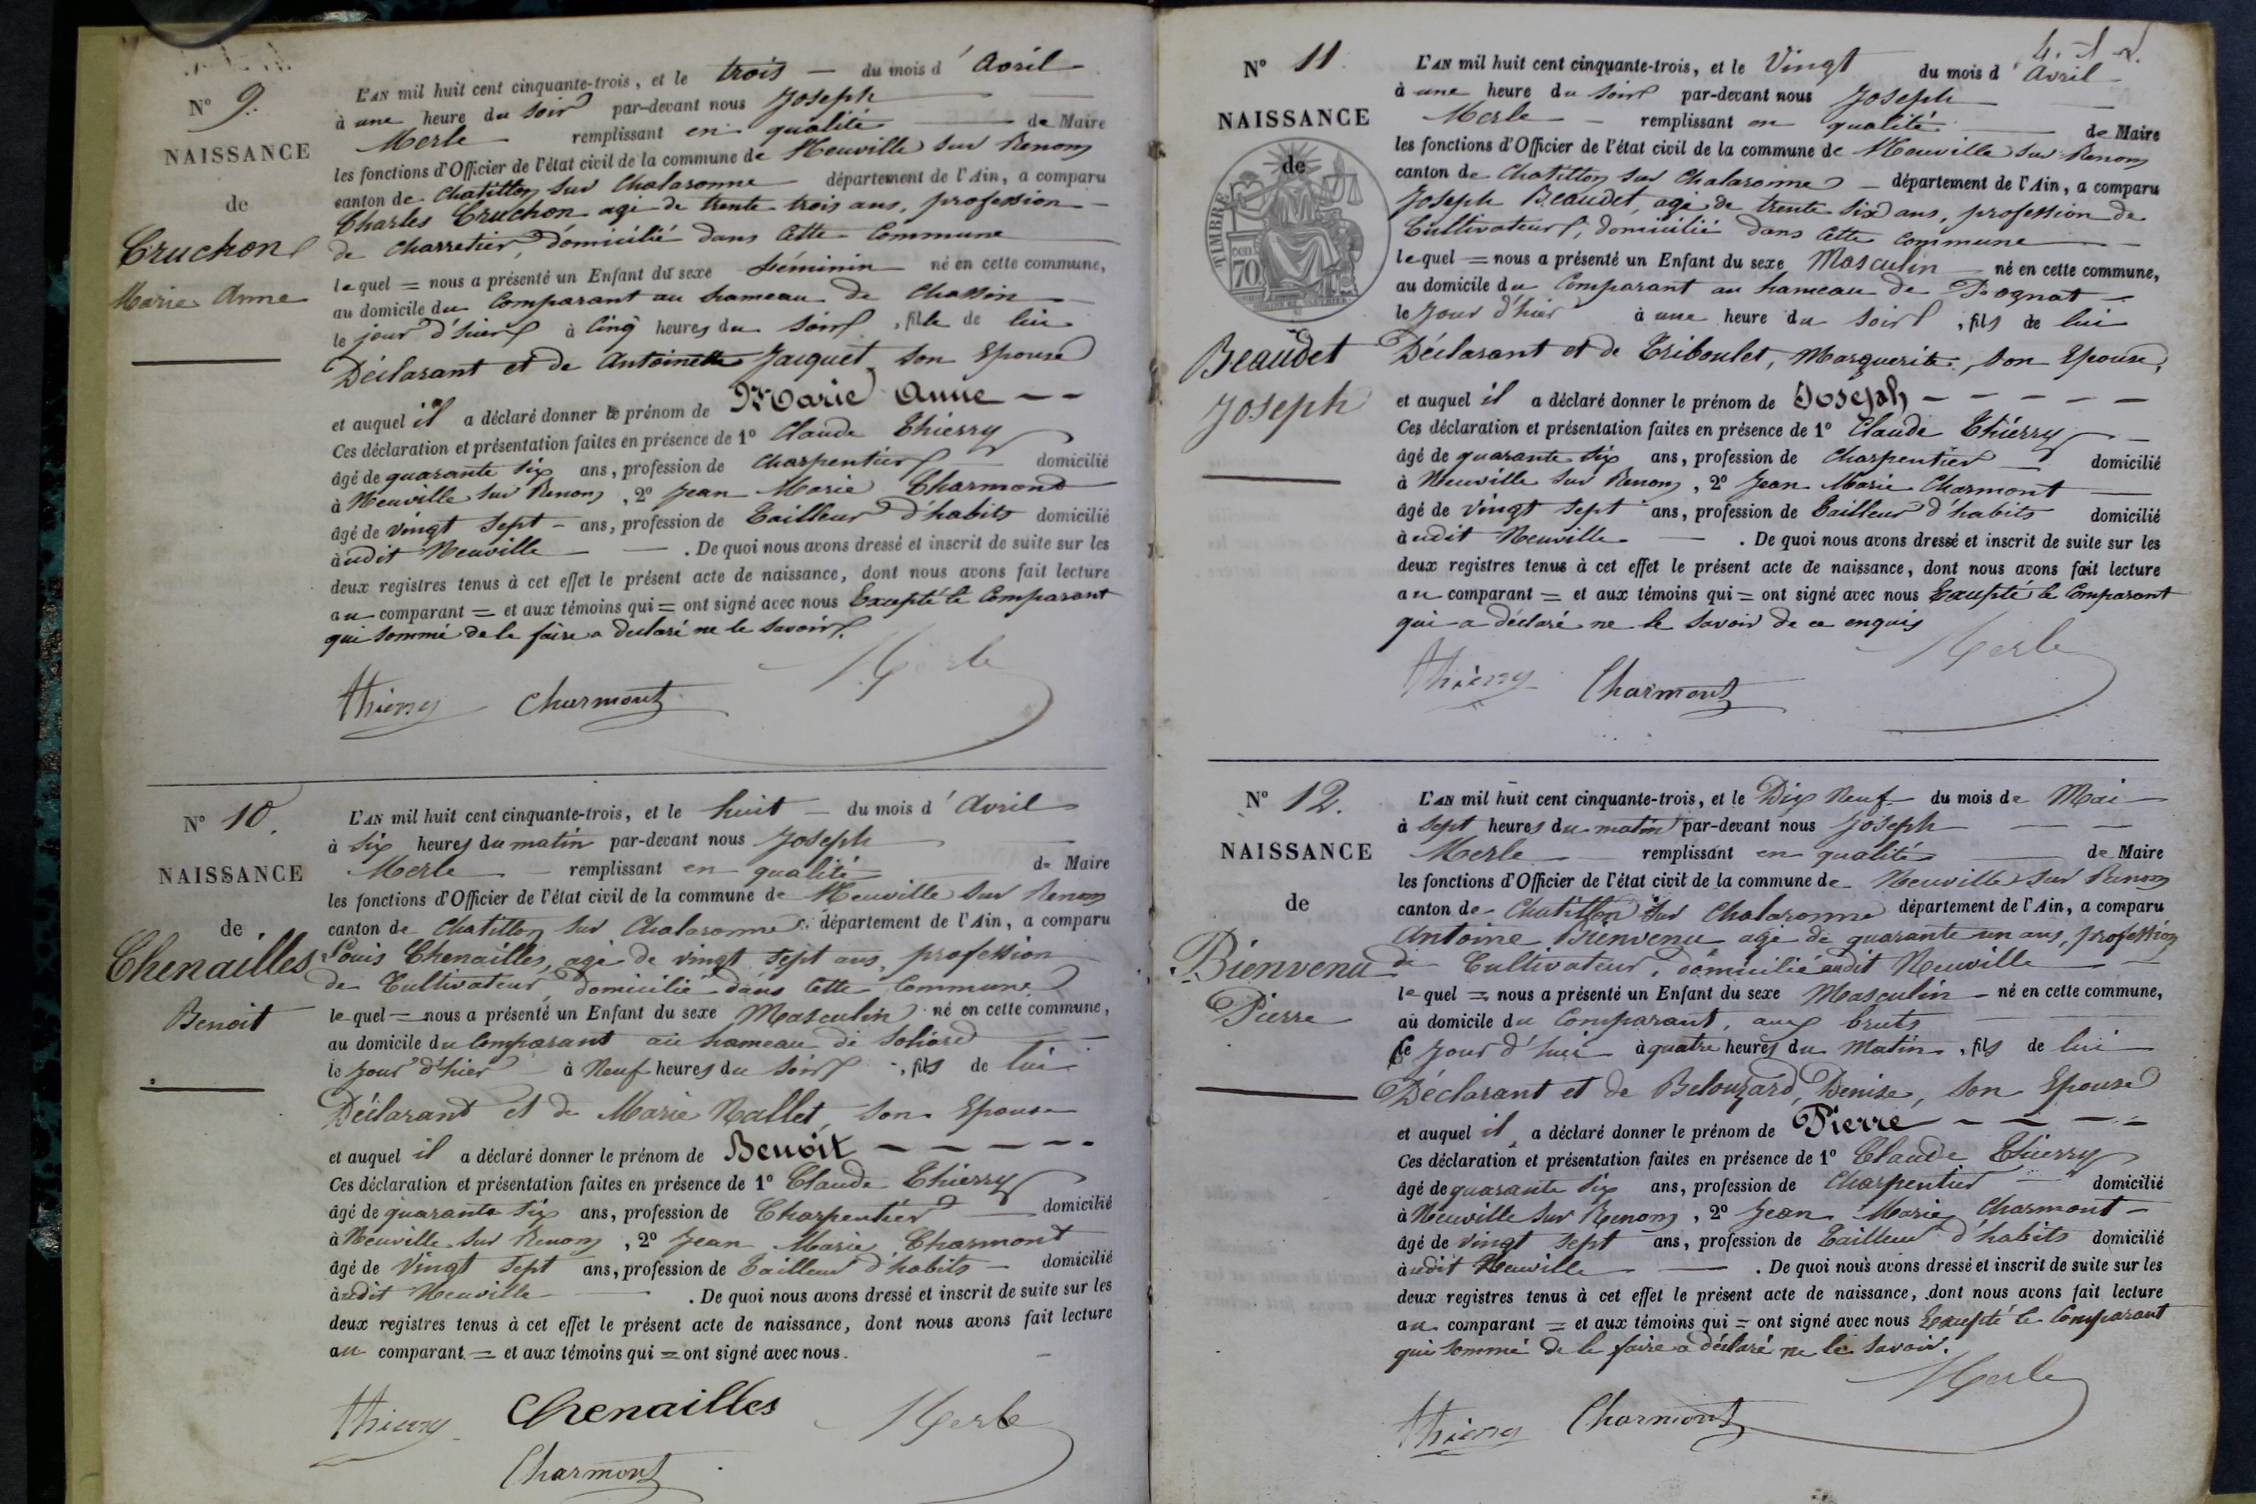 N° 9.
NAISSANCE
de
Cruchon
Marie Anne
L'AN mil huit cent cinquante-trois, et le trois — du mois d'Avril
à une heure du soir par-devant nous Joseph
Merle remplissant en qualité de Maire
les fonctions d'Officier de l'état civil de la commune de Neuville sur Renom
canton de Chatillon sur Chalaronne département de l'Ain, a comparu
Charles Cruchon agé de trente trois ans, profession
de Charretier, domicilié dans Cette Commune
lequel = nous a présenté un Enfant du sexe féminin né en cette commune,
au domicile du Comparant au hameau de Chassin
le jour d'hier à Cinq heures du soir, fille de lui
Déclarant et de Antoinette Jacquet son Epouse
et auquel il a déclaré donner le prénom de Marie Anne — —
Ces déclaration et présentation faites en présence de 1° Claude Thierry
âgé de quarante six ans, profession de Charpentier domicilié
à Neuville sur Renom, 2° Jean Marie Charmont
âgé de vingt sept — ans, profession de Tailleur d'habits domicilié
àudit Neuville — — . De quoi nous avons dressé et inscrit de suite sur les
deux registres tenus à cet effet le présent acte de naissance, dont nous avons fait lecture
au comparant = et aux témoins qui = ont signé avec nous Excepté le Comparant
qui sommé de le faire a declaré ne le savoir.
Thierry Charmont Merle
N° 10.
NAISSANCE
de
Chenailles
Benoit
L'AN mil huit cent cinquante-trois, et le huit — du mois d'Avril
à six heures du matin par-devant nous Joseph
Merle — remplissant en qualité de Maire
les fonctions d'Officier de l'état civil de la commune de Neuville sur Renom
canton de Chatillon sur Chalaronne département de l'Ain, a comparu
Louis Chenailles, agé de vingt sept ans, profession
de Cultivateur domicilié dans Cette Commune
lequel = nous a présenté un Enfant du sexe Masculin né en cette commune,
au domicile du Comparant au hameau de Soliard
le jour d'hier à Neuf heures du soir -, fils de lui
Déclarant et de Marie Nallet, son Epouse
et auquel il a déclaré donner le prénom de Benoit — — — — -
Ces déclaration et présentation faites en présence de 1° Claude Thierry
âgé de quarante six ans, profession de Charpentier domicilié
à Neuville sur Renom, 2° Jean Marie Charmont
âgé de vingt sept ans, profession de Tailleur d'habits — domicilié
àudit Neuville — . De quoi nous avons dressé et inscrit de suite sur les
deux registres tenus à cet effet le présent acte de naissance, dont nous avons fait lecture
au comparant = et aux témoins qui = ont signé avec nous.
Thierry Chenailles Merle
Charmont
4.
N° 11.
NAISSANCE
de
TIMBRE
70
Beaudet
Joseph
L'AN mil huit cent cinquante-trois, et le Vingt du mois d'Avril
à une heure du soir par-devant nous Joseph
Merle — remplissant en qualité de Maire
les fonctions d'Officier de l'état civil de la commune de Neuville sur Renom
canton de Chatillon sur Chalaronne — département de l'Ain, a comparu
Joseph Beaudet, agé de trente six ans, profession de
Cultivateur, domicilié dans Cette Commune
lequel = nous a présenté un Enfant du sexe Masculin né en cette commune,
au domicile du Comparant au hameau de Dognat —
le jour d'hier à une heure du soir, fils de lui
Déclarant et de Triboulet, Marguerite, son Epouse,
et auquel il a déclaré donner le prénom de Joseph — — — — —
Ces déclaration et présentation faites en présence de 1° Claude Thierry
âgé de quarante six ans, profession de Charpentier — domicilié
à Neuville sur Renom, 2° Jean Marie Charmont
âgé de vingt sept ans, profession de Tailleur d'habits domicilié
àudit Neuville — . De quoi nous avons dressé et inscrit de suite sur les
deux registres tenus à cet effet le présent acte de naissance, dont nous avons fait lecture
au comparant = et aux témoins qui = ont signé avec nous Excepté le Comparant
qui a déclaré ne le savoir de ce enquis
Thierry Charmont Merle
N° 12.
NAISSANCE
de
Bienvenu
Pierre
L'AN mil huit cent cinquante-trois, et le Dix Neuf du mois de Mai
à sept heures du matin par-devant nous Joseph — —
Merle remplissant en qualité de Maire
les fonctions d'Officier de l'état civil de la commune de Neuville sur Renom
canton de Chatillon sur Chalaronne département de l'Ain, a comparu
Antoine Bienvenu agé de quarante un ans, profession
de Cultivateur, domicilié audit Neuville
lequel = nous a présenté un Enfant du sexe Masculin — né en cette commune,
au domicile du Comparant, aux bruts
le jour d'hui à quatre heures du Matin, fils de lui
Déclarant et de Belouzard, Denise, son Epouse
et auquel il a déclaré donner le prénom de Pierre — — — —
Ces déclaration et présentation faites en présence de 1° Claude Thierry
âgé de quarante six ans, profession de Charpentier domicilié
à Neuville sur Renom, 2° Jean Marie Charmont —
âgé de vingt sept ans, profession de Tailleur d'habits domicilié
àudit Neuville — . De quoi nous avons dressé et inscrit de suite sur les
deux registres tenus à cet effet le présent acte de naissance, dont nous avons fait lecture
au comparant = et aux témoins qui = ont signé avec nous Excepté le Comparant
qui sommé de le faire a déclaré ne le savoir.
Thierry Charmont Merle